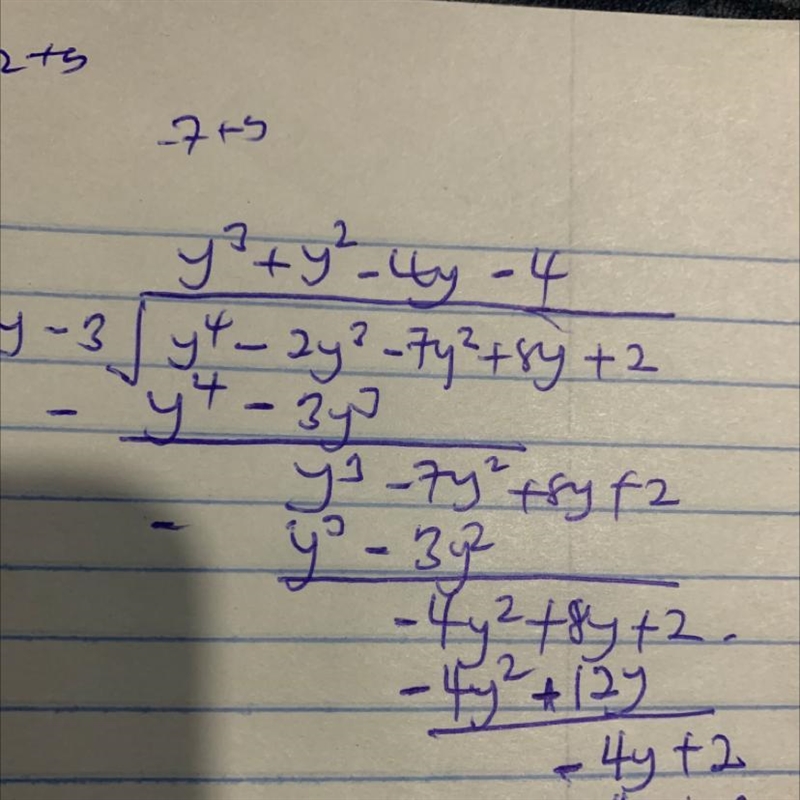 2+5
-7+5
y³ + y² - 4y - 4
y - 3 √ y⁴ - 2y³ - 7y² + 8y + 2
- y⁴ - 3y³
y³ - 7y² + 8y + 2
- y³ - 3y²
-4y² + 8y + 2
-4y² + 12y
-4y + 2